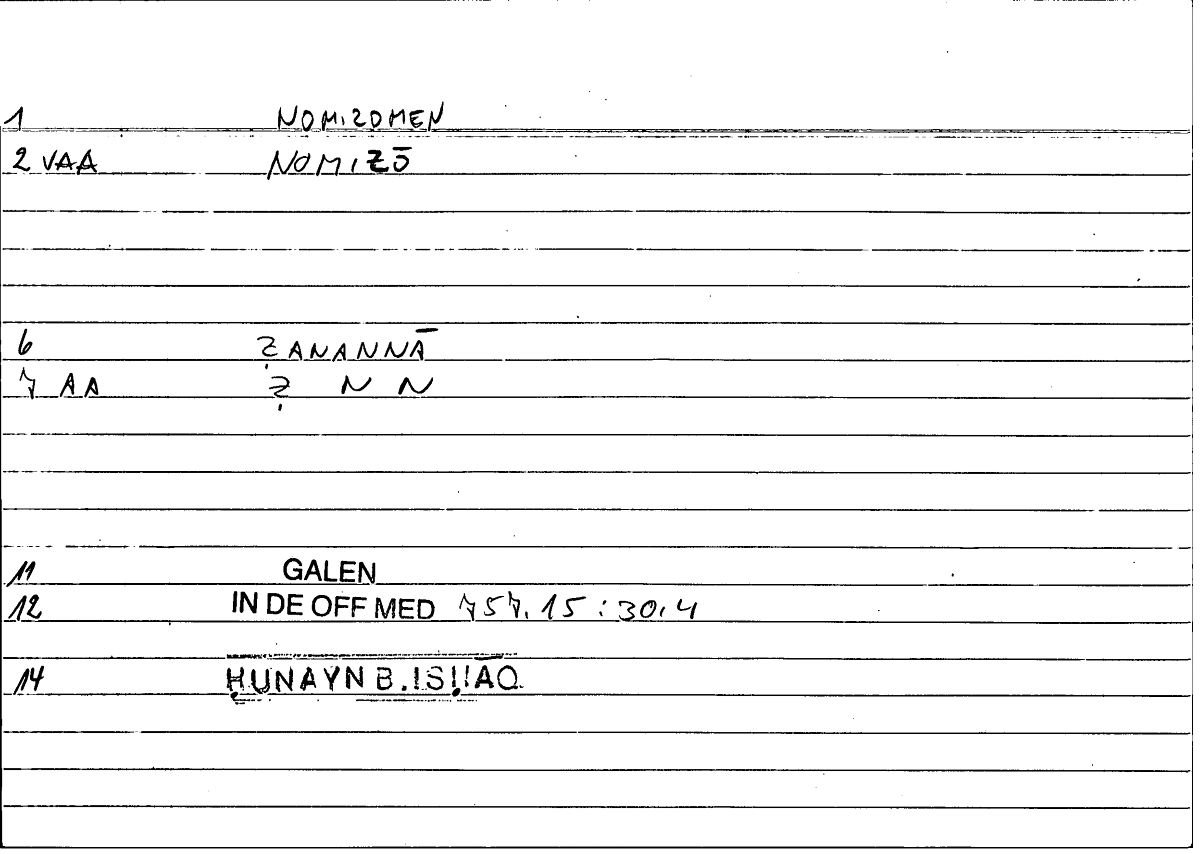 1 NOMIZOMEN
2 VAA NOMIZŌ
6 ẒANANNĀ
7 AA Ẓ N N
11 GALEN
12 IN DE OFF MED 757.15:30.4
14 ḤUNAYN B.ISḤĀQ